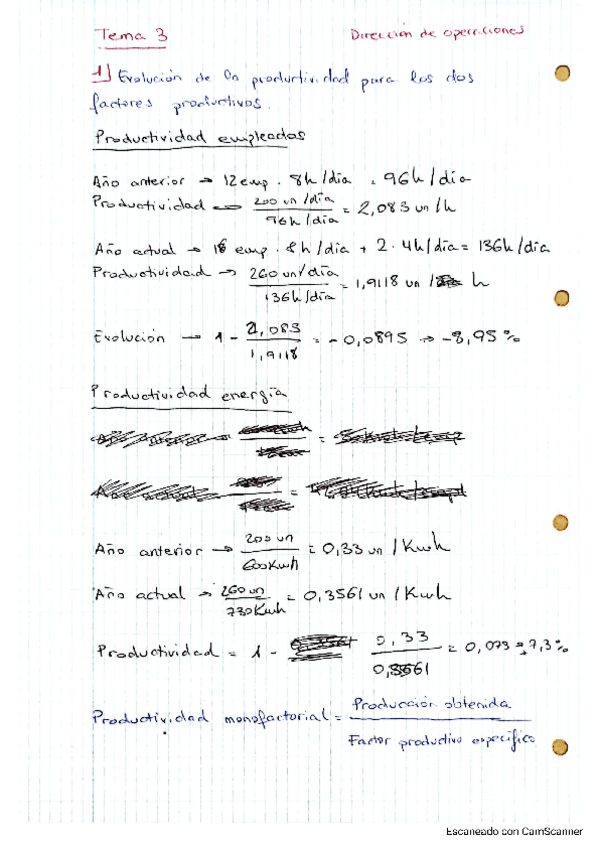 Tema 3 Dirección de operaciones
1) Evolución de la productividad para los dos
factores productivos.
Productividad empleados
Año anterior → 12 emp. 8h/día = 96h/día
Productividad → 200 un/día / 96h/día = 2,083 un/h
Año actual → 16 emp. 8h/día + 2.4h/día = 136h/día
Productividad → 260 un/día / 136h/día = 1,9118 un / h
Evolución → 1 - 2,083 / 1,9118 = -0,0895 → -8,95%
Productividad energía
Año anterior → 200 un / 600Kwh = 0,33 un /Kwh
Año actual → 260 un / 730Kwh = 0,3561 un /Kwh
Productividad = 1 - 0,33 / 0,3561 = 0,073 = 7,3%
Productividad monofactorial = Producción obtenida / Factor productivo específico
Escaneado con CamScanner